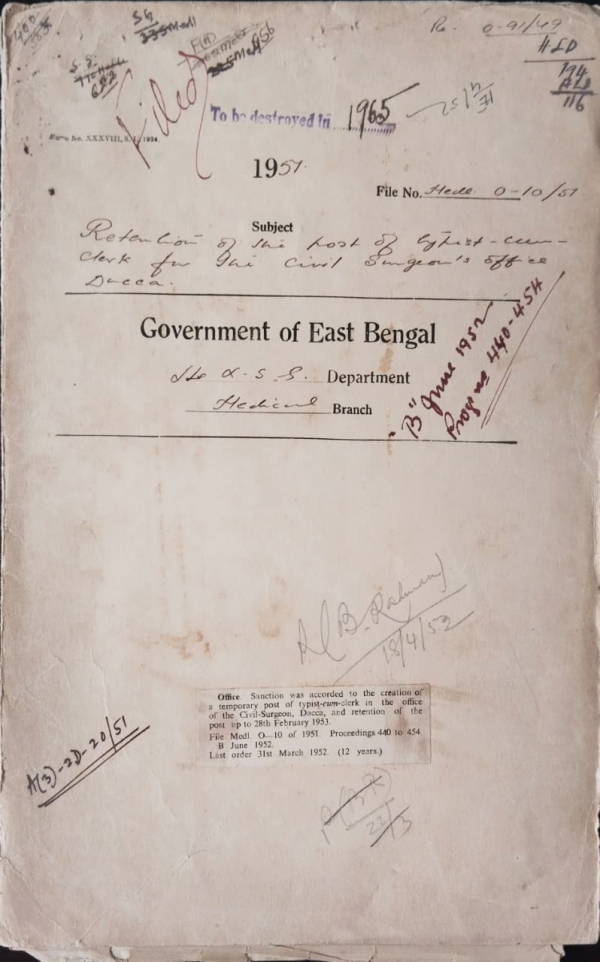 Re. 0-91/49
Filed
To be destroyed in 1965
Form No. XXXVIII, 1934.
1951
File No. Medl. O-10/51
Subject
Retention of the post of typist-cum-
clerk for the Civil Surgeon's office
Dacca.
Government of East Bengal
H & L.S.G. Department
Medical Branch
"B" June 1952
Progs nos 440-454
18/4/52
Office. Sanction was accorded to the creation of
a temporary post of typist-cum-clerk in the office
of the Civil-Surgeon, Dacca, and retention of the
post up to 28th February 1953.
File Medl. O—10 of 1951. Proceedings 440 to 454
B June 1952.
Last order 31st March 1952. (12 years.)
A(3)-2D-20/51